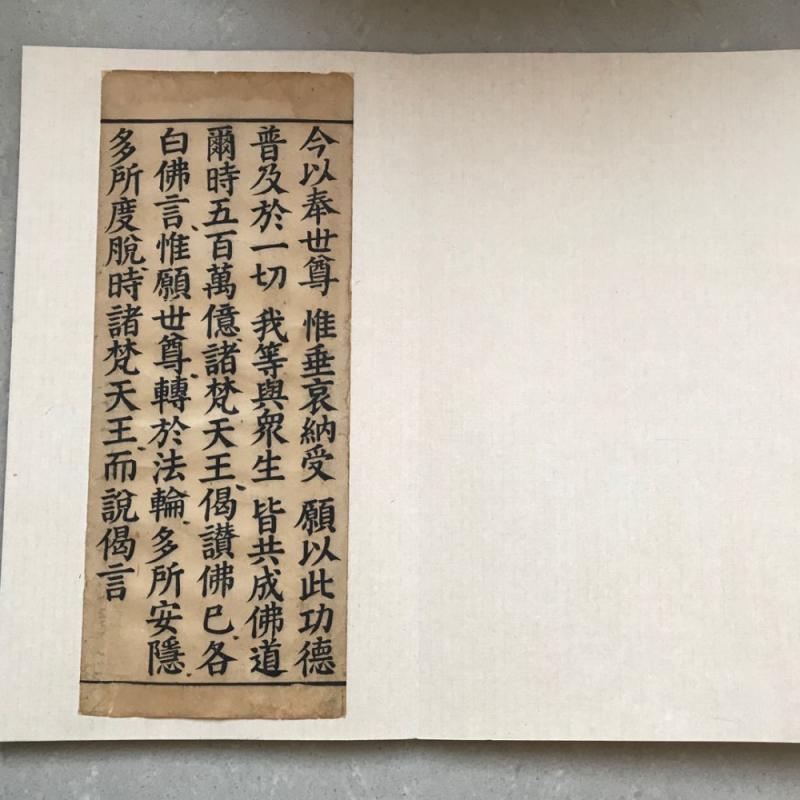 今以奉世尊 惟垂哀納受 願以此功德
普及於一切 我等與衆生 皆共成佛道
爾時五百萬億諸梵天王偈讃佛已各
白佛言惟願世尊轉於法輪多所安隱
多所度脫時諸梵天王而說偈言